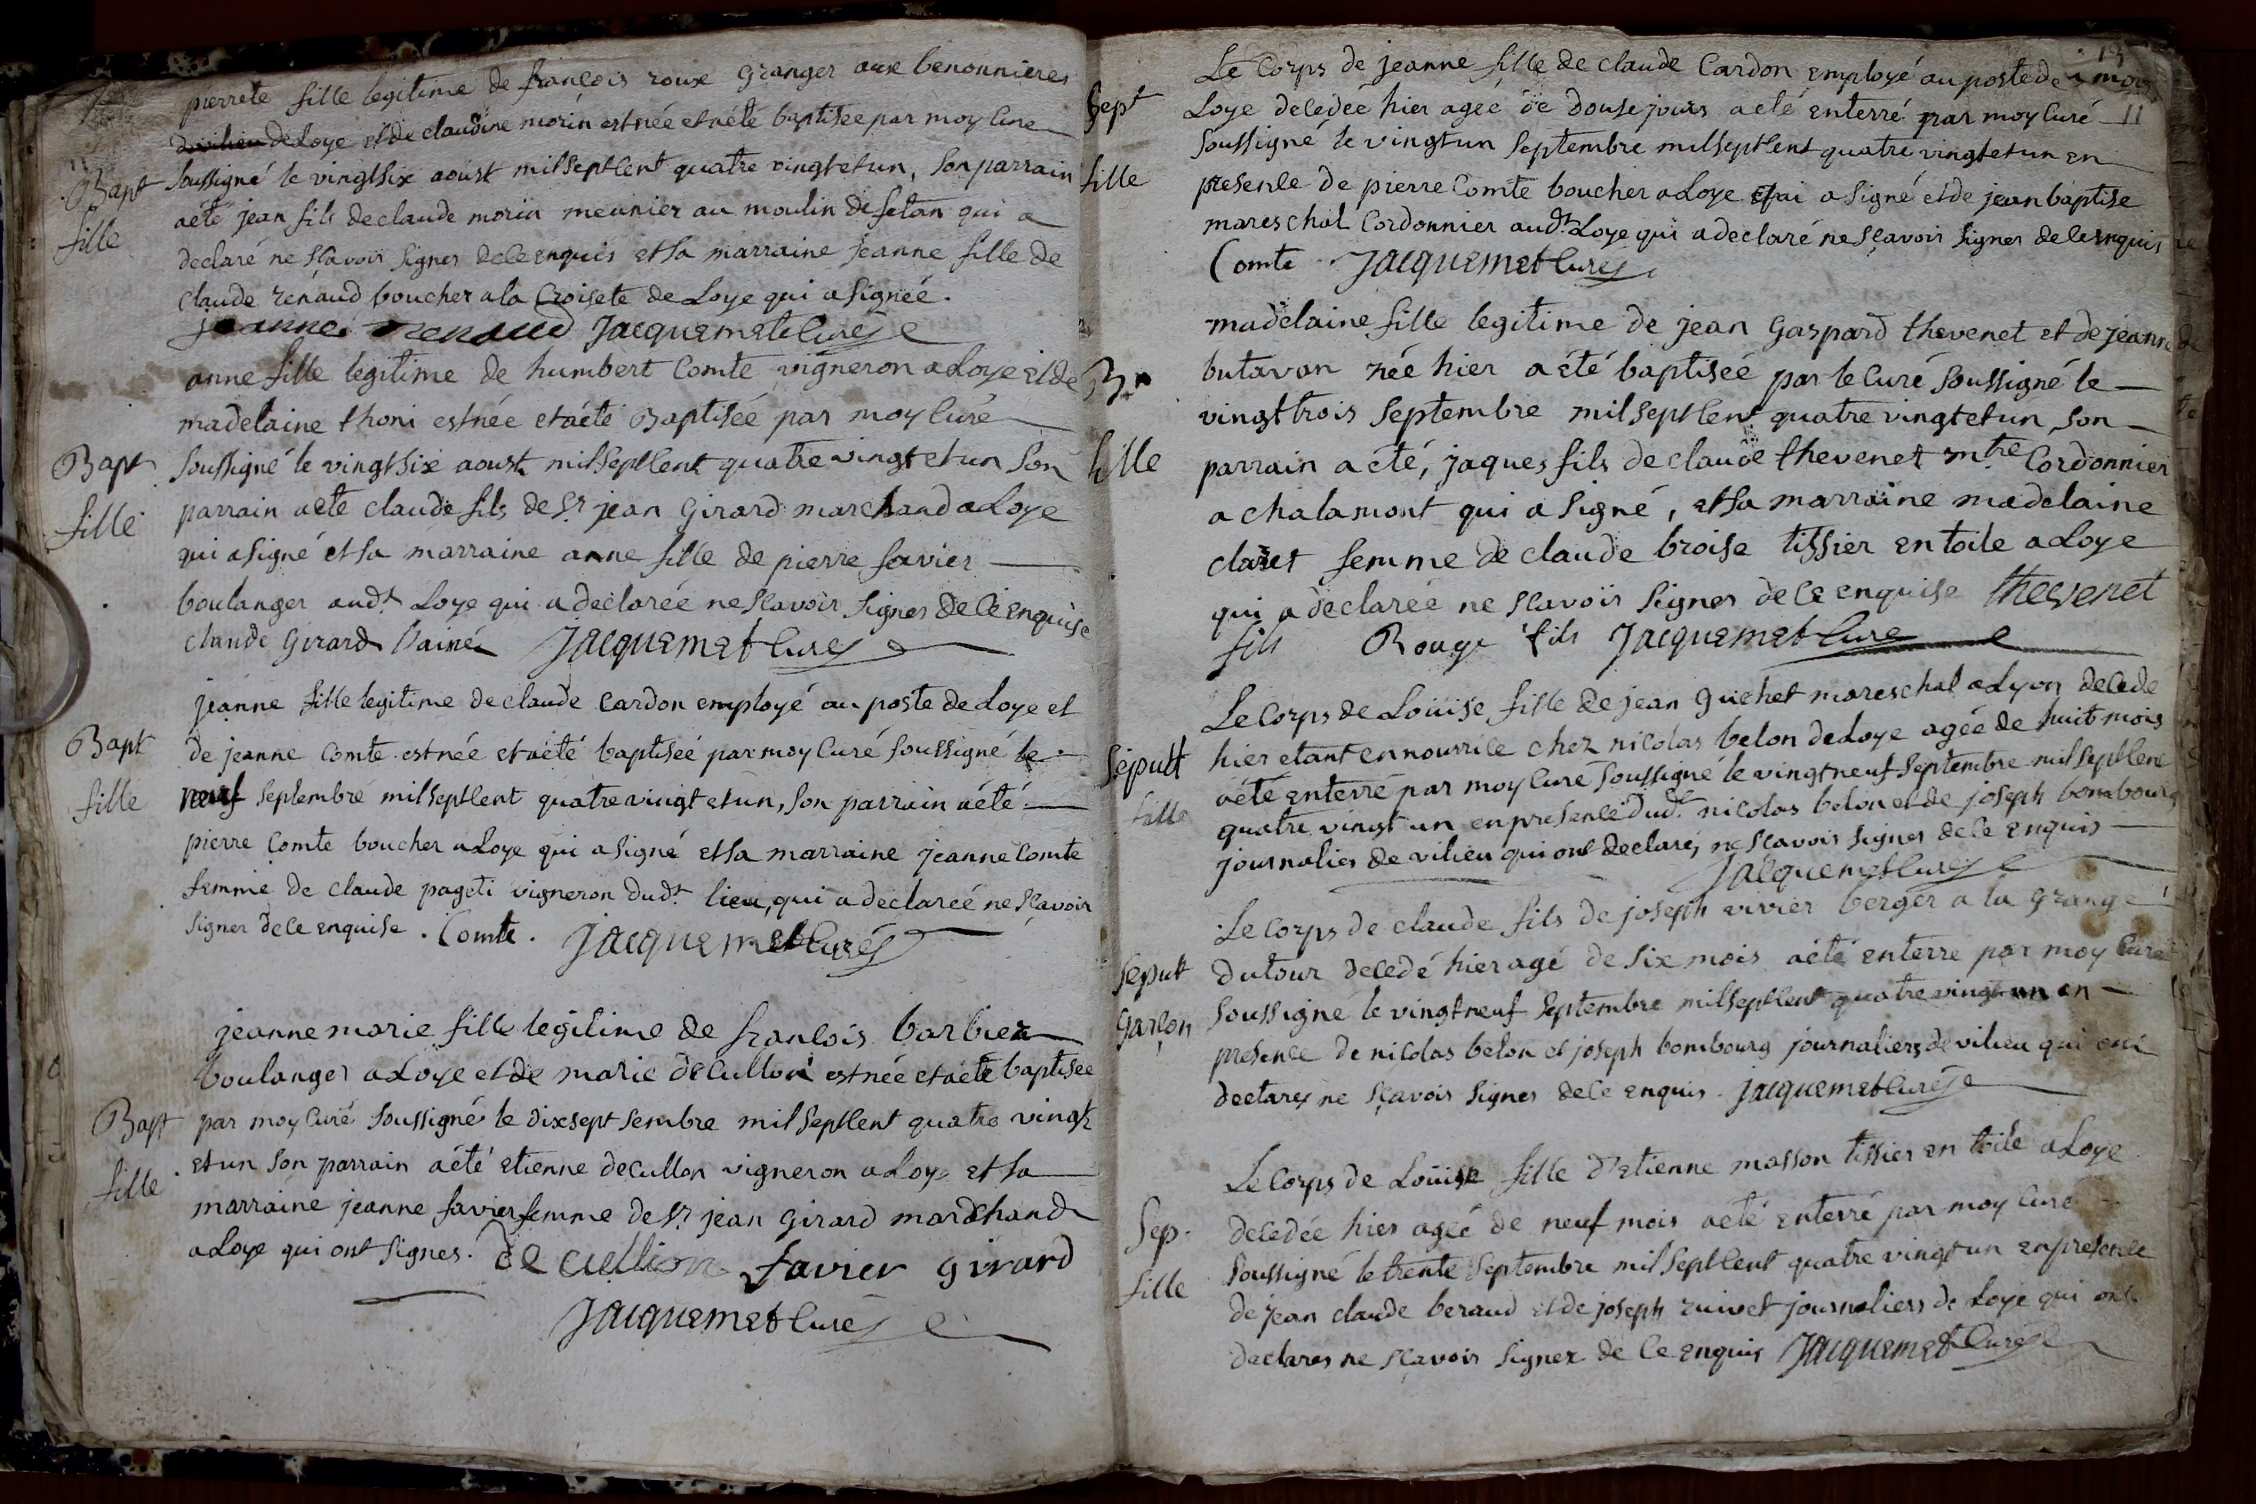 pierrete fille legitime de françois roux Granger aux benonnieres
de Loye et de claudine morin est née et a été baptisée par moy Curé
Bapt
fille
soussigné le vingt six aoust mil sept cent quatre vingt et un, son parrain
a été jean fils de claude morin meunier au moulin de fetan qui a
declaré ne sçavoir signer de ce enquis et sa marraine jeanne fille de
claude renaud boucher a la Croisete de Loye qui a signée.
jeanne renaud Jacquemet Curé
anne fille legitime de humbert Comte vigneron a Loye et de
madelaine thoni est née et a été Baptisée par moy Curé
Bapt
fille
soussigné le vingt six aoust mil sept cent quatre vingt et un son
parrain a été claude fils de Sr jean Girard marchand a Loye
qui a signé et sa marraine anne fille de pierre favier
boulanger audt Loye qui a declarée ne sçavoir signer de ce enquise
claude Girard l'ainé Jacquemet Curé
jeanne fille legitime de claude Cardon employé au poste de Loye et
Bapt
fille
de jeanne Comte est née et a été baptiseé par moy Curé soussigné le
neuf septembre mil sept cent quatre vingt et un, son parrain a été
pierre Comte boucher a Loye qui a signé et sa marraine jeanne Comte
femme de claude pageti vigneron dudt lieu, qui a declareé ne sçavoir
signer de ce enquise. Comte. Jacquemet Curé
jeanne marie fille legitime de françois barbier
boulanger a Loye et de marie decullon est née et a été baptisée
Bapt
fille
par moy Curé soussigné le dix sept sembre mil sept cent quatre vingt
et un son parrain a été etienne decullon vigneron a Loye et sa
marraine jeanne favier femme de Sr jean Girard marchand
a Loye qui ont signes. de cullion favier girard
Jacquemet Curé
13
11
Le Corps de jeanne fille de claude Cardon employé au poste de
Sept
fille
Loye decedeé hier ageé de douse jours a eté enterré par moy Curé
soussigné le vingt un septembre mil sept cent quatre vingt et un en
presence de pierre Comte boucher a Loye qui a signé et de jean baptise
mareschal Cordonnier audt Loye qui a declaré ne sçavoir signer de ce enquis
Comte Jacquemet Curé
madelaine fille legitime de jean Gaspard thevenet et de jeanne
B
fille
butavan née hier a été baptisée par le Curé soussigné le
vingt trois septembre mil sept cent quatre vingt et un, son
parrain a été, jaques fils de claude thevenet mtre Cordonnier
a chalamont qui a signé, et sa marraine madelaine
claret femme de claude broise tissier en toile a Loye
qui a declarée ne sçavoir signer de ce enquise thevenet
fils Rouge fils Jacquemet Curé
Le Corps de Loüise fille de jean Guichet mareschal a Lyon decedé
Sepult
fille
hier etant en nourrice chez nicolas belon de Loye agée de huit mois
a été enterré par moy Curé soussigné le vingt neuf septembre mil sept cent
quatre vingt un en presence dudt nicolas belon et de joseph bombourg
journalier de vilieu qui ont declarés ne sçavoir signer de ce enquis
Jacquemet Curé
Le Corps de claude fils de joseph vivier berger a la Grange
Sepult
Garçon
dutour decedé hier agé de six mois a été enterre par moy Curé
soussigné le vingt neuf septembre mil sept cent quatre vingt un en
presence de nicolas belon et joseph bombourg journaliers de vilieu qui ont
declarés ne sçavoir signer de ce enquis. Jacquemet Curé
Le Corps de Loüise fille d'etienne masson tissier en toile a Loye
Sep.
fille
decedée hier ageé de neuf mois a eté enterré par moy Curé
soussigné le trente septembre mil sept cent quatre vingt un en presence
de jean claude beraud et de joseph ruivet journaliers de Loye qui ont
declares ne sçavoir signer de ce enquis Jacquemet Curé